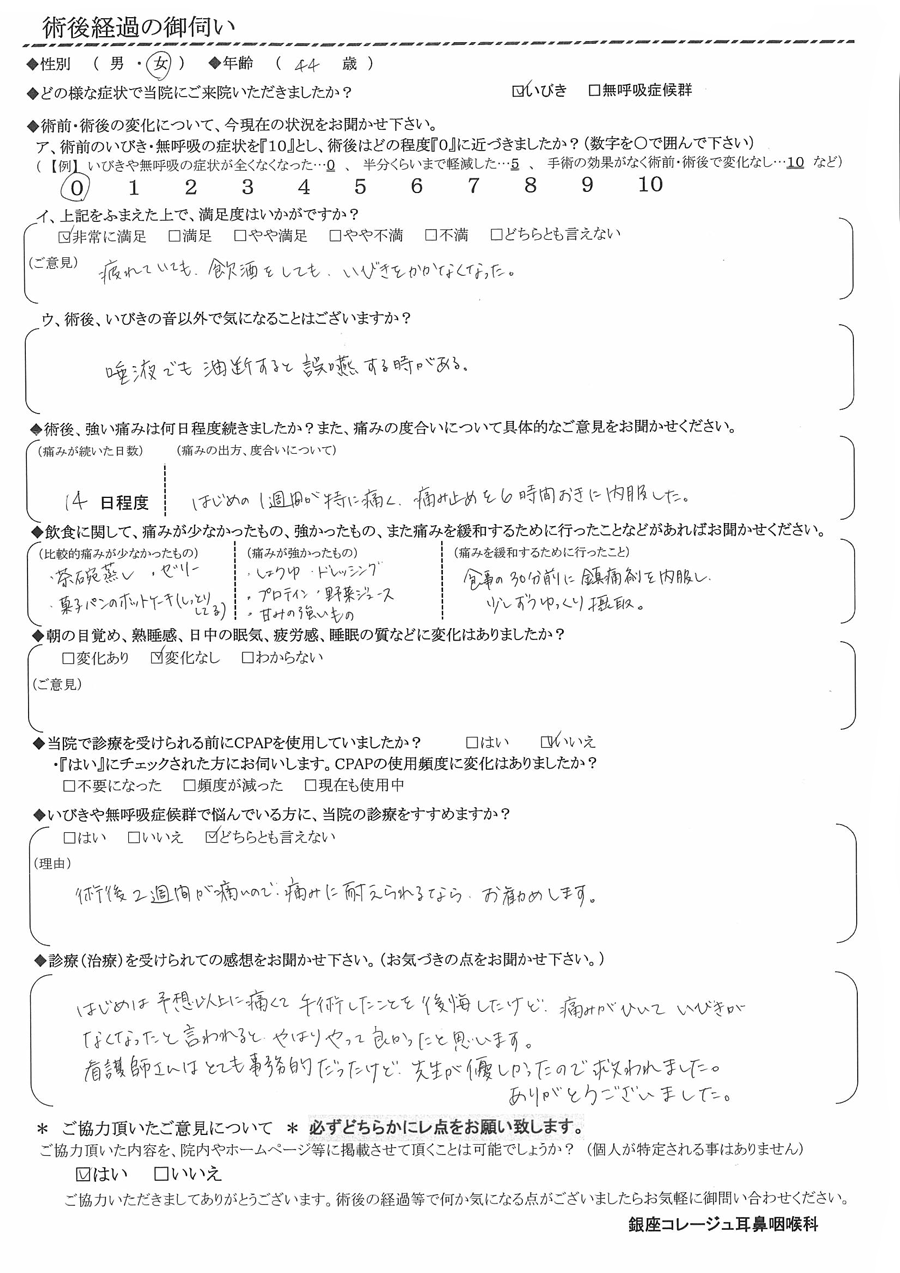 術後経過の御伺い
◆性別 （ 男 ・ 女 ） ◆年齢 （ 44 歳 ）
◆どの様な症状で当院にご来院いただきましたか？ ☑いびき □無呼吸症候群
◆術前・術後の変化について、今現在の状況をお聞かせ下さい。
ア、術前のいびき・無呼吸の症状を『10』とし、術後はどの程度『0』に近づきましたか？（数字を○で囲んで下さい）
（【例】いびきや無呼吸の症状が全くなくなった…0 、 半分くらいまで軽減した…5 、 手術の効果がなく術前・術後で変化なし…10 など）
0 1 2 3 4 5 6 7 8 9 10
イ、上記をふまえた上で、満足度はいかがですか？
☑非常に満足 □満足 □やや満足 □やや不満 □不満 □どちらとも言えない
（ご意見） 疲れていても、飲酒をしても、いびきをかかなくなった。
ウ、術後、いびきの音以外で気になることはございますか？
唾液でも油断すると誤嚥する時がある。
◆術後、強い痛みは何日程度続きましたか？また、痛みの度合いについて具体的なご意見をお聞かせください。
（痛みが続いた日数） （痛みの出方、度合いについて）
14 日程度 はじめの1週間が特に痛く、痛み止めを6時間おきに内服した。
◆飲食に関して、痛みが少なかったもの、強かったもの、また痛みを緩和するために行ったことなどがあればお聞かせください。
（比較的痛みが少なかったもの） （痛みが強かったもの） （痛みを緩和するために行ったこと）
・茶碗蒸し ・ゼリー ・しょうゆ ・ドレッシング 食事の30分前に鎮痛剤を内服し、
・菓子パンのホットケーキ(しっとりしてる) ・プロテイン ・野菜ジュース 少しずつゆっくり摂取。
・甘みの強いもの
◆朝の目覚め、熟睡感、日中の眠気、疲労感、睡眠の質などに変化はありましたか？
□変化あり ☑変化なし □わからない
（ご意見）
◆当院で診療を受けられる前にCPAPを使用していましたか？ □はい ☑いいえ
・『はい』にチェックされた方にお伺いします。CPAPの使用頻度に変化はありましたか？
□不要になった □頻度が減った □現在も使用中
◆いびきや無呼吸症候群で悩んでいる方に、当院の診療をすすめますか？
□はい □いいえ ☑どちらとも言えない
（理由）
術後2週間が痛いので、痛みに耐えられるなら、お勧めします。
◆診療（治療）を受けられての感想をお聞かせ下さい。（お気づきの点をお聞かせ下さい。）
はじめは予想以上に痛くて手術したことを後悔したけど、痛みがひいていびきが
なくなったと言われると、やはりやって良かったと思います。
看護師さんはとても事務的だったけど、先生が優しかったので救われました。
ありがとうございました。
＊ ご協力頂いたご意見について ＊ 必ずどちらかにレ点をお願い致します。
ご協力頂いた内容を、院内やホームページ等に掲載させて頂くことは可能でしょうか？（個人が特定される事はありません）
☑はい □いいえ
ご協力いただきましてありがとうございます。術後の経過等で何か気になる点がございましたらお気軽に御問い合わせください。
銀座コレージュ耳鼻咽喉科